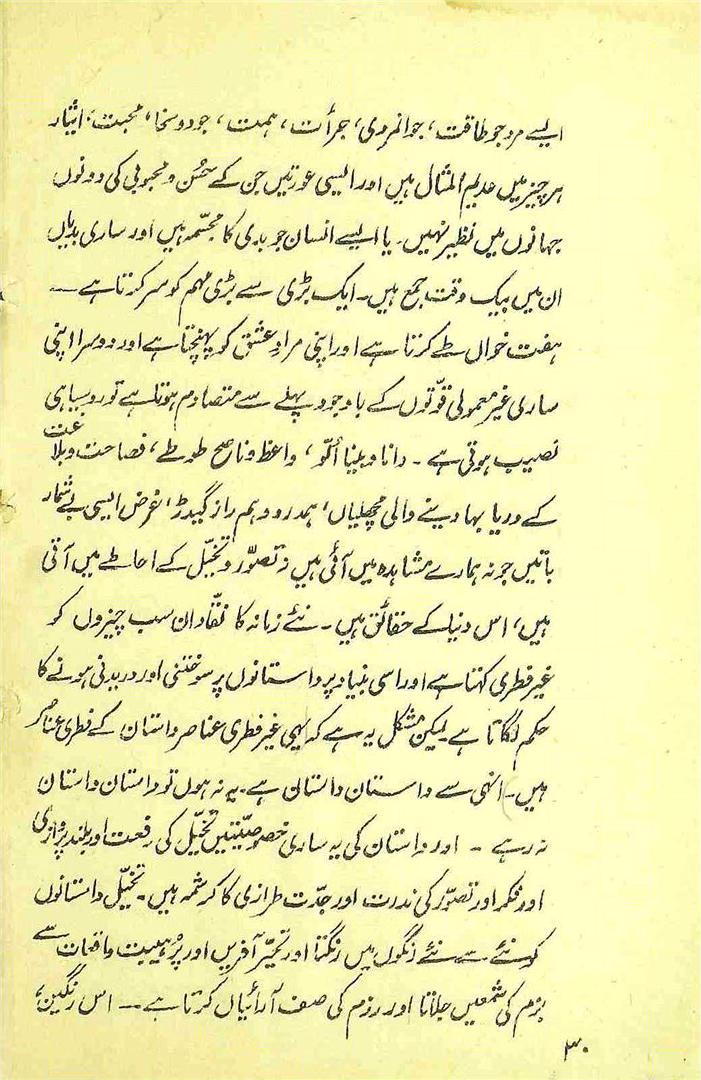 ایسے مرد جو طاقت، جوانمردی، جرأت، ہمت، جود و سخا، محبت، ایثار
ہر چیز میں عدیم المثال ہیں اور ایسی عورتیں جن کے حُسن و محبوبی کی دونوں
جہانوں میں نظیر نہیں۔ یا ایسے انسان جو بدی کا مجسّمہ ہیں اور ساری بدیاں
ان میں بیک وقت جمع ہیں۔ ایک بڑی سے بڑی مہم کو سر کرتا ہے ـــ
ہفت خواں طے کرتا ہے اور اپنی مرادِ عشق کو پہنچتا ہے اور دوسرا اپنی
ساری غیر معمولی قوّتوں کے باوجود پہلے سے متصادم ہوتا ہے تو روسیاہی
نصیب ہوتی ہے۔ دانا و بینا اُلّو، واعظ و ناصح طوطے، فصاحت و بلاغت
کے دریا بہا دینے والی مچھلیاں، ہمدرد و ہم راز گیدڑ، غرض ایسی بے شمار
باتیں جو نہ ہمارے مشاہدہ میں آئی ہیں نہ تصوّر و تخیّل کے احاطے میں آتی
ہیں، اس دنیا کے حقائق ہیں۔ نئے زمانہ کا نقّاد ان سب چیزوں کو
غیر فطری کہتا ہے اور اسی بنیاد پر داستانوں پر سوختنی اور دریدنی ہونے کا
حکم لگاتا ہے۔ لیکن مشکل یہ ہے کہ یہی غیر فطری عناصر داستان کے فطری عناصر
ہیں۔ انہی سے داستان داستان ہے۔ یہ نہ ہوں تو داستان داستان
نہ رہے ۔ اور داستان کی یہ ساری خصوصیتیں تخیّل کی رفعت اور بلند پروازی
اور فکر اور تصوّر کی ندرت اور جدّت طرازی کا کرشمہ ہیں۔ تخیّل داستانوں
کو نئے سے نئے رنگوں میں رنگتا اور تحیّر آفریں اور پُر ہیبت واقعات سے
بزم کی شمعیں جلاتا اور رزم کی صف آرائیاں کرتا ہے ــ اس رنگین،
۳۰